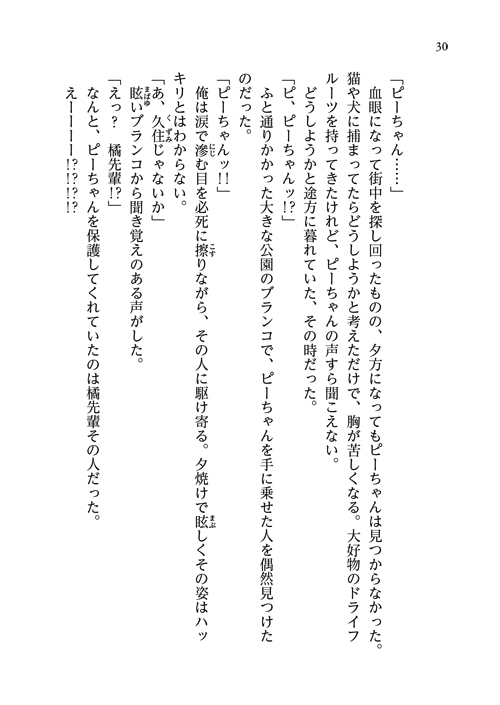 30
「ピーちゃん……」
血眼になって街中を探し回ったものの、夕方になってもピーちゃんは見つからなかった。
猫や犬に捕まってたらどうしようかと考えただけで、胸が苦しくなる。大好物のドライフ
ルーツを持ってきたけれど、ピーちゃんの声すら聞こえない。
どうしようかと途方に暮れていた、その時だった。
「ピ、ピーちゃんッ!?」
ふと通りかかった大きな公園のブランコで、ピーちゃんを手に乗せた人を偶然見つけた
のだった。
「ピーちゃんッ!!」
俺は涙で滲にじむ目を必死に擦こすりながら、その人に駆け寄る。夕焼けで眩まぶしくその姿はハッ
キリとはわからない。
「あ、久住くずみじゃないか」
眩まばゆいブランコから聞き覚えのある声がした。
「えっ?　橘先輩!?」
なんと、ピーちゃんを保護してくれていたのは橘先輩その人だった。
えーーーー!?!?!?